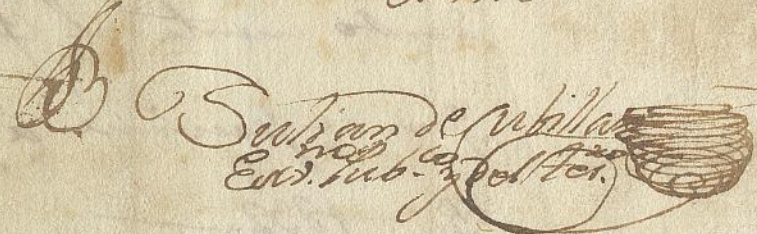 Julian de Cubillas
Esno. Pubco. y del